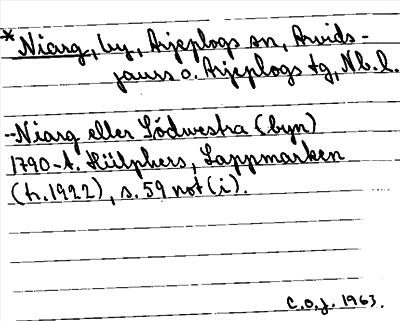 *Niarg, by, Arjeplogs sn, Arvids-
jaurs o. Arjeplogs tg, Nb.l.
--Niarg eller Södwestra (byn)
1790-A. Hülphers, Lappmarken
(h.1922), s. 59 not (i).
C.O.J. 1963.